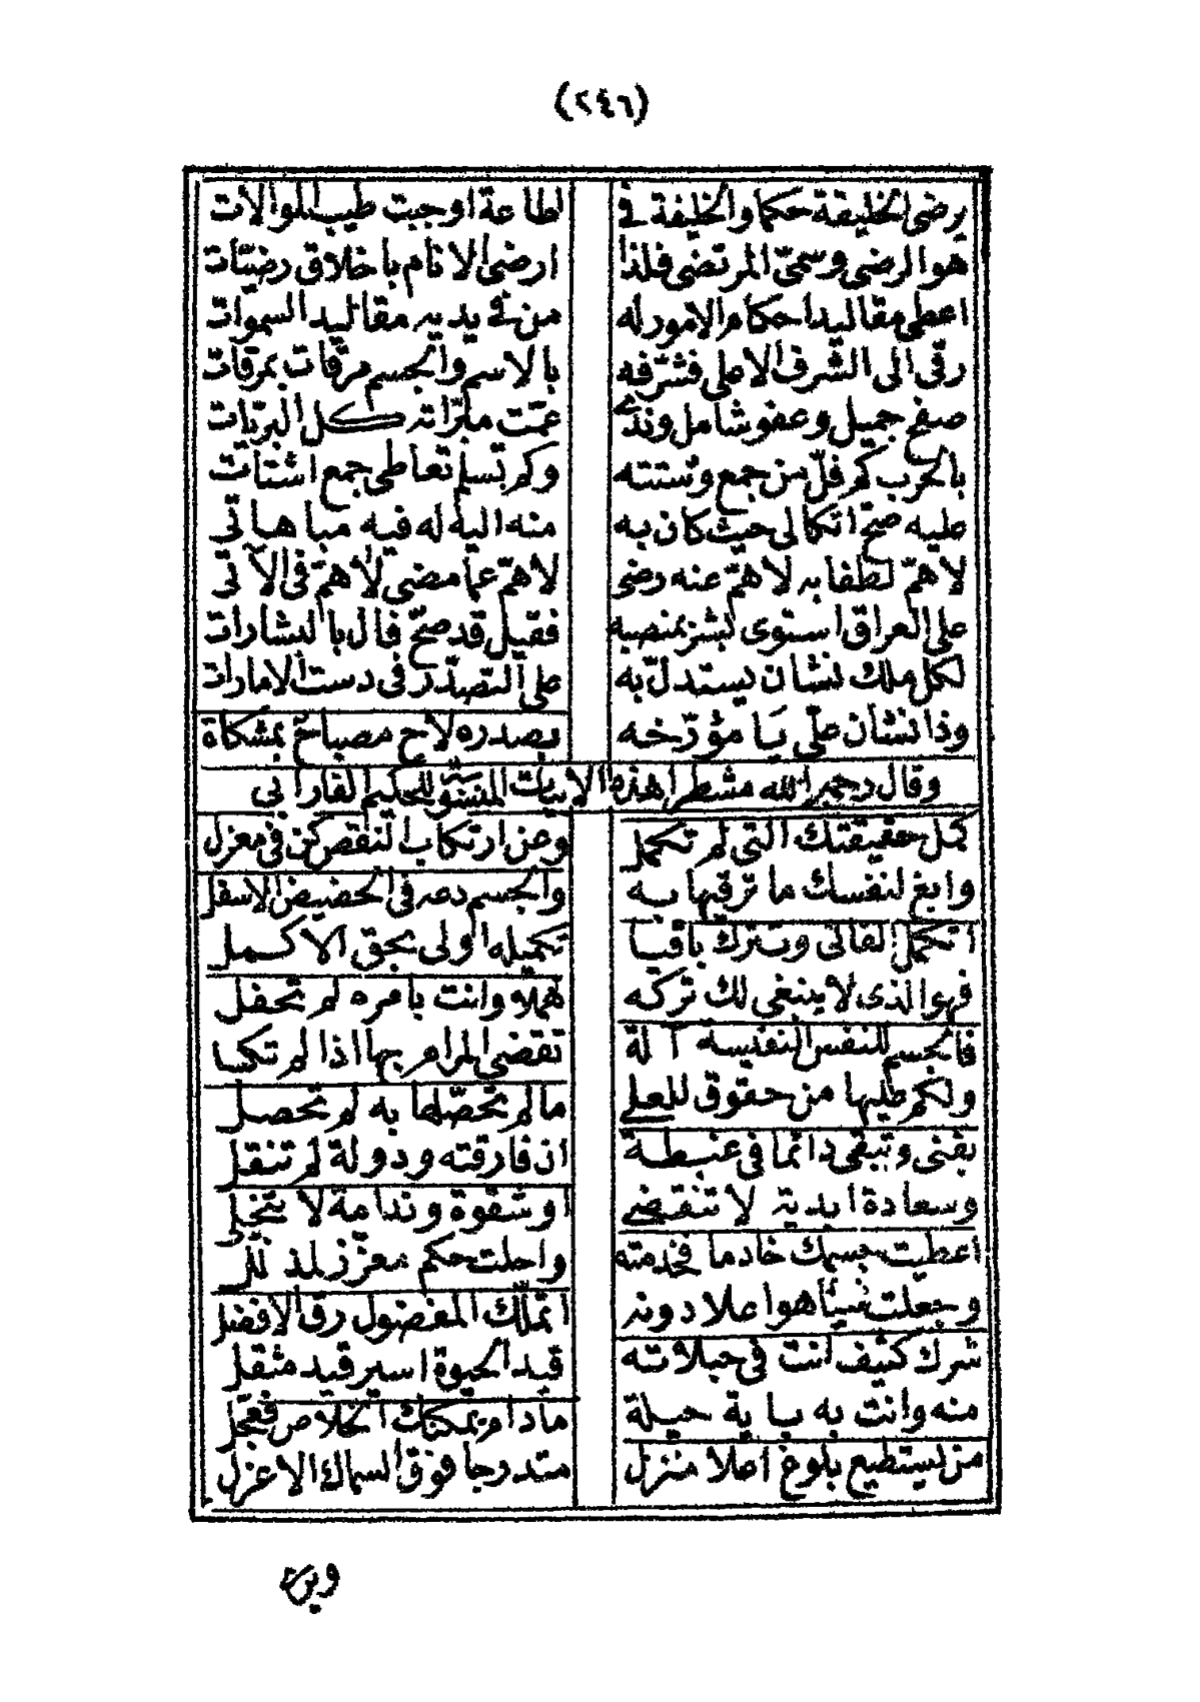 (٢٤٦)
يرضى الخليقة حكما والخليفة في لطاعة اوجبت طيب الموالات
هو الرضى وسمىّ المرتضى فلذا ارضى الانام باخلاق رضيّات
اعطى مقاليد احكام الامور له من في يديه مقاليد السموات
رقى الى الشرف الاعلى فشرّفه بالاسم والجسم مرقات بمرقات
صفح جميل وعفو شامل وندى عمّت مبرّاته كل البريات
بالحرب كم فلّ من جمع وشتته وكم بسلم تعاطى جمع اشتات
عليه صح اتكالى حيث كان به منه اليه له فيه مباهاتى
لاهمّ لطفا به لاهمّ عنه رضى لاهمّ عما مضى لاهمّ فى الآتى
على العراق استوى بمنصبه فقيل قد صحّ فال بالبشارات
لكل ملك نشان يستدلّ به على التصدّر فى دست الامارات
وذا نشان علّى يا مؤرّخه بصدره لاح مصباحٌ بمشكاة
وقال رحمه الله مشطرا هذه الابيات المنسوبة للحكيم الفارابى
كمل حقيقتك التى لم تكمل وعن ارتكاب النقص كن فى معزل
وابغ لنفسك ما ترقيها به والجسم دعه فى الحضيض الاسفل
اتكمل الفانى وتترك باقيا تكميله اولى بحق الاكمل
فهو الذى لا ينبغى لك تركه هملا وانت بامره لم تحفل
فالجسم للنفس النفيسة آلة تقضى المرام بها اذا لم تكسل
ولكم عليها من حقوق للعلى ما لم تحصّلها به لم تحصل
يفنى وتبقى دائما فى غبطة ان فارقته ودولة لم تنقل
وسعادة ابدية لا تنقضى او شقوة وندامة لا تنجلى
اعطيت جسمك خادما فخدمته واحلت حكم معزّز لمذلّل
وجعلت شيأ هو اعلا دونه اتملّك المفضول رق الافضل
شرك كثيف انت فى حبلاته قيد الحيوة اسير قيد مثقل
منه وانت به باية حيلة مادام يمكنك الخلاص فعجّل
من يستطيع بلوغ اعلا منزل متدرجا فوق السماك الاعزل